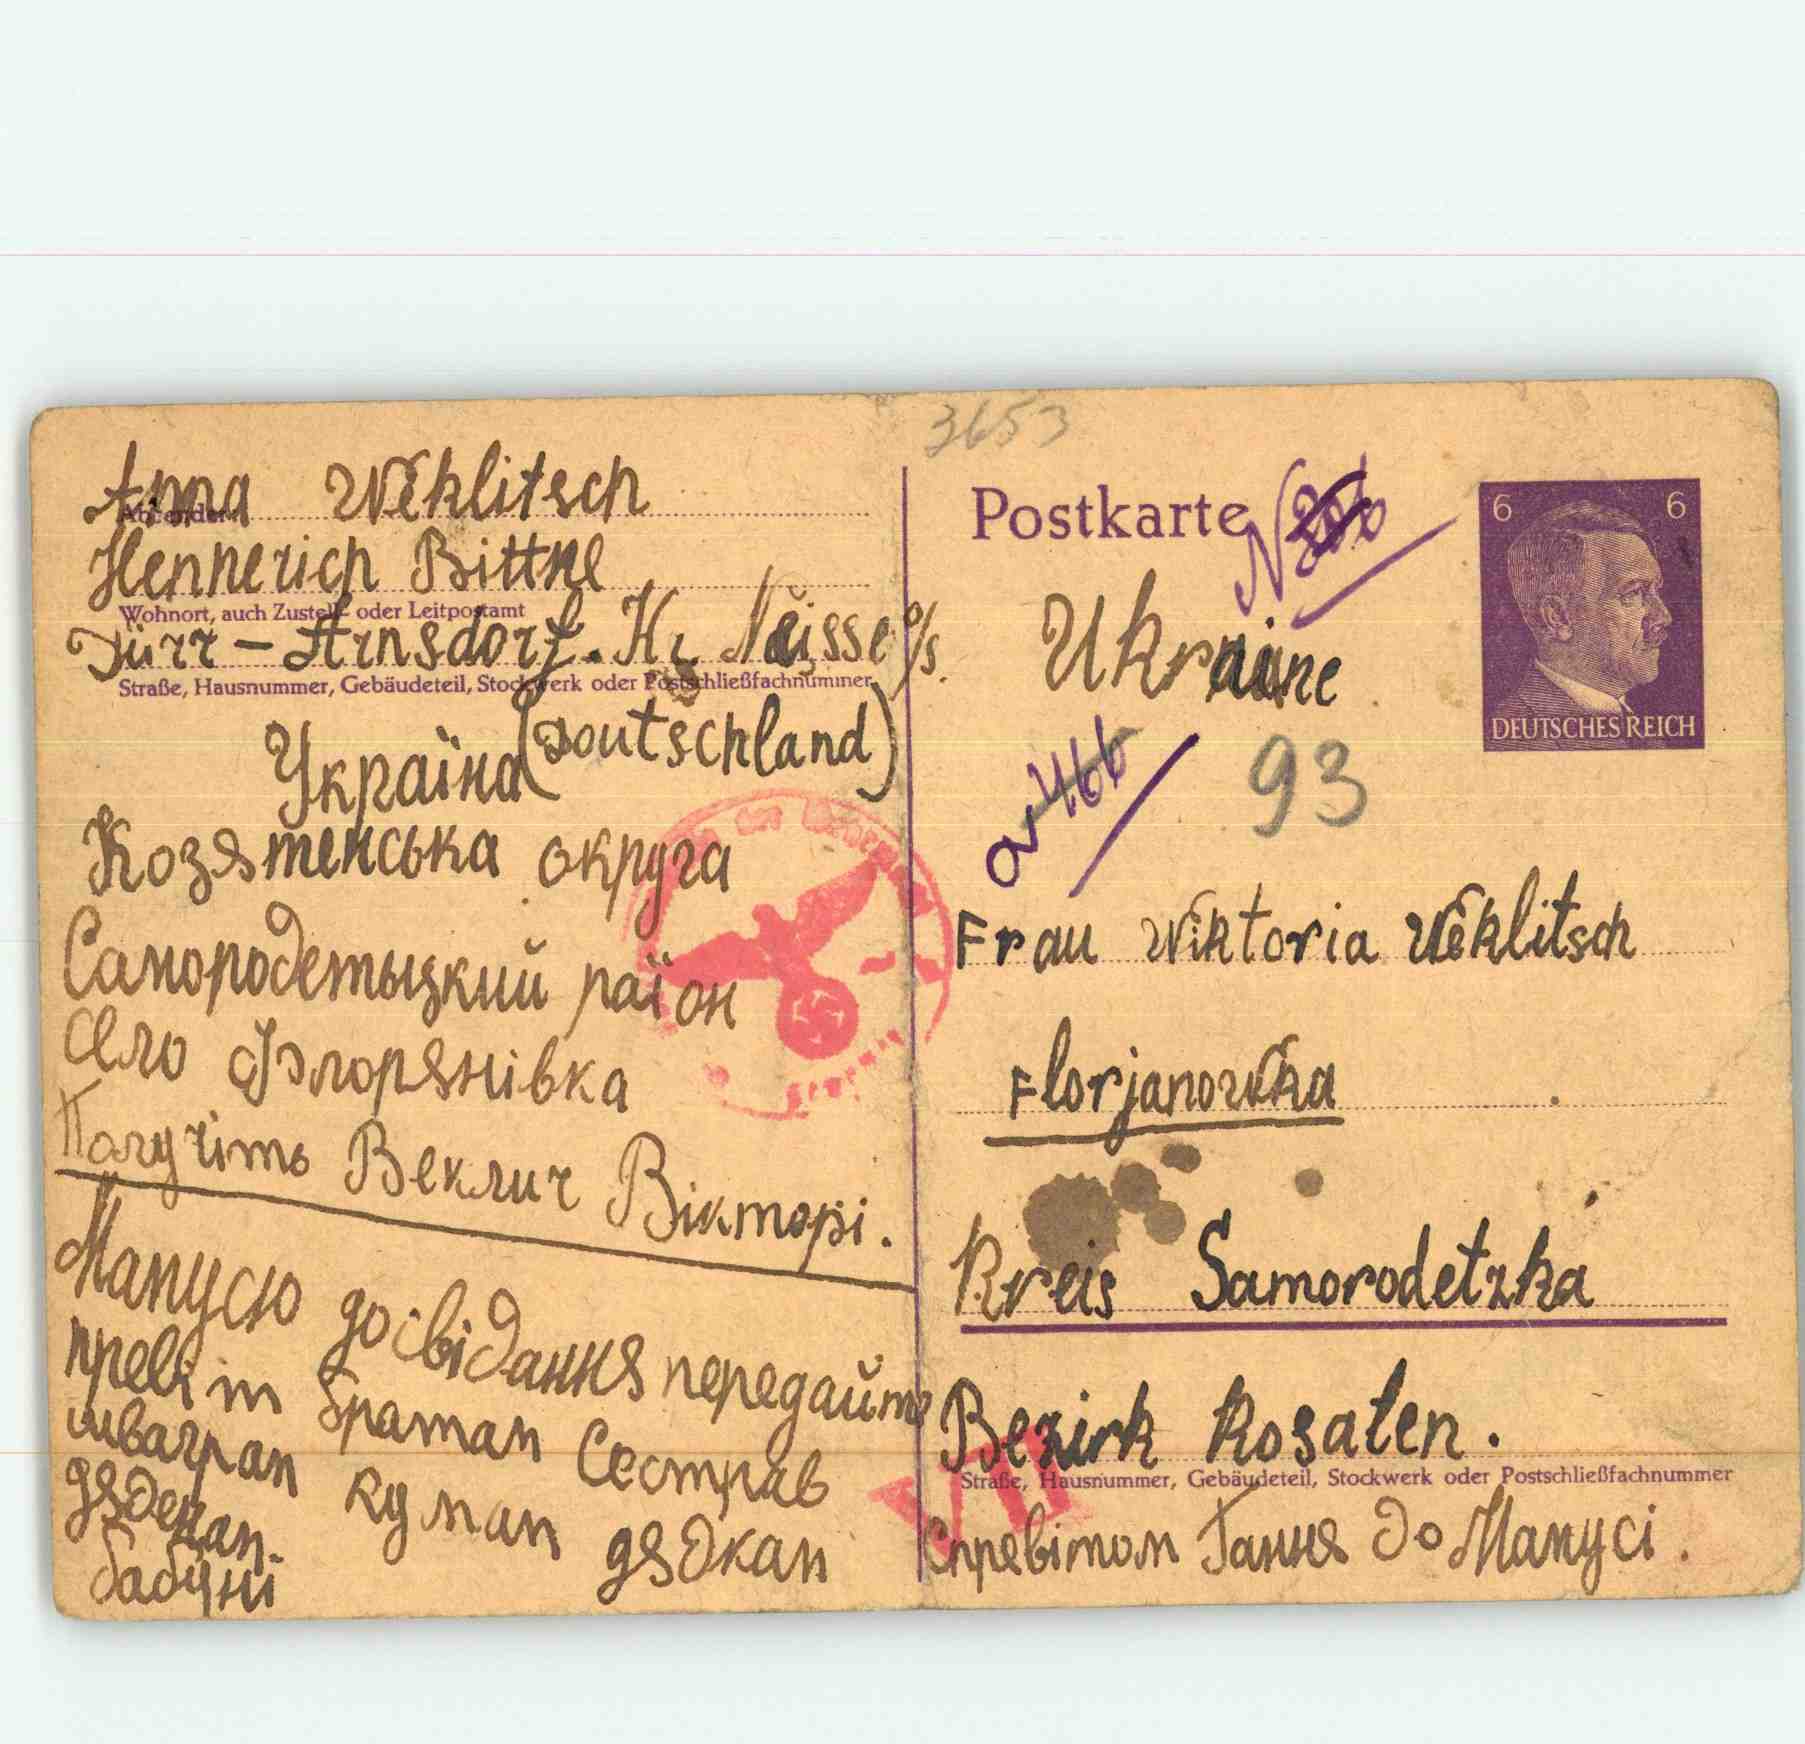 Anna Weklitsch
Absender:
Hennerich Bittne
Wohnort, auch Zustell- oder Leitpostamt
Dürr – Arnsdorf. Kr. Neisse o/s.
Straße, Hausnummer, Gebäudeteil, Stockwerk oder Postschließfachnummer
(Doutschland)
Україна
Козятенська округа
Самородетьцкий район
Село Флорянівка
Получіть Веклич Вікторі.
Мамусю досвідання передайте
превіт братам Сестрав
шваграм кумам дядкам
дяденам.
бабуні
3653
Postkarte
6 6
DEUTSCHES REICH
Ukraine
93
Frau Wiktoria Weklitsch
Florjanowka
Kreis Samorodetzka
Bezirk Kosaten.
Straße, Hausnummer, Gebäudeteil, Stockwerk oder Postschließfachnummer
Спревітом Гання до Мамусі.